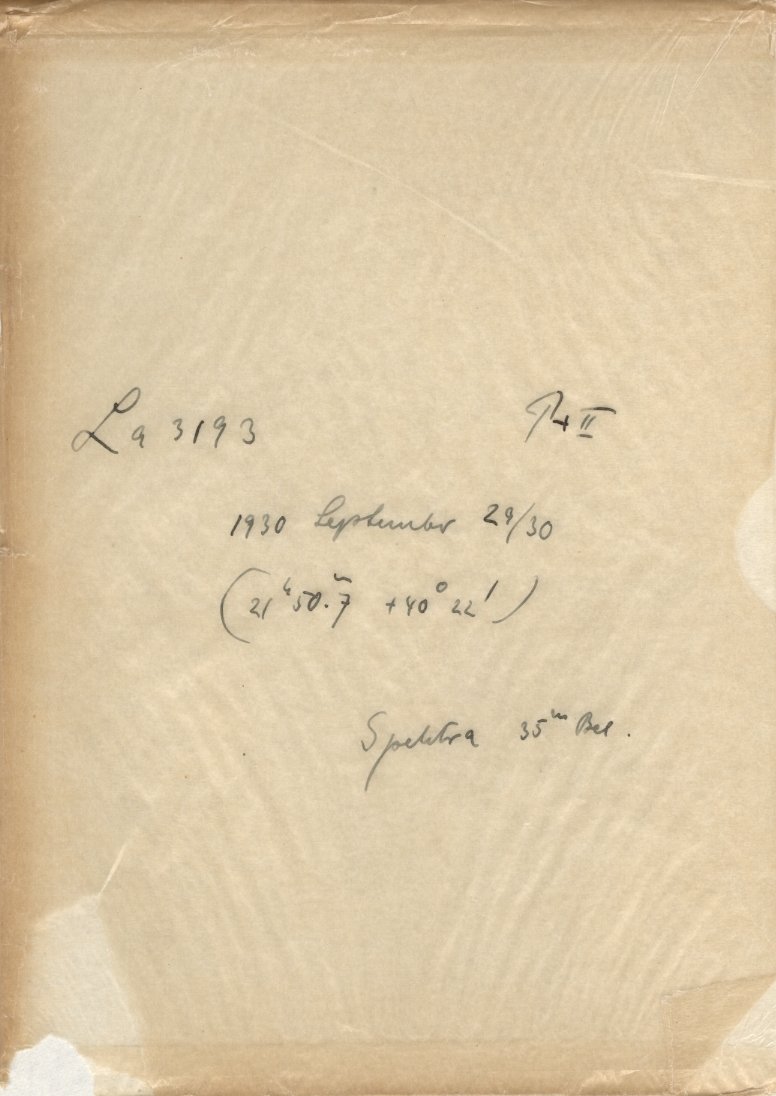 La 3193
1930 September 29/30
(21ʰ50ᵐ.7 +40°22')
Spektra 35ᵐ Bel.